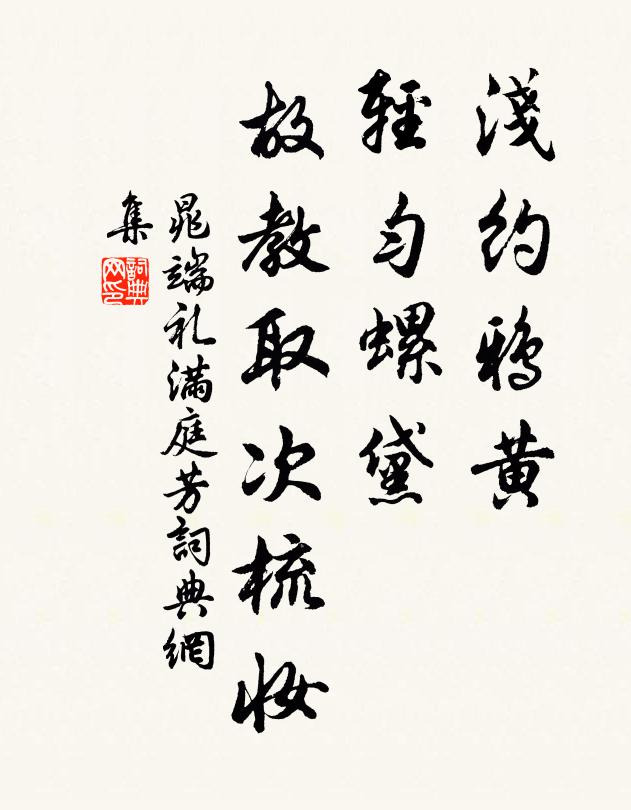 淺約鴉黃
輕勻螺黛
故教取次梳妝
晁端礼滿庭芳詞典網
集
詞典网印